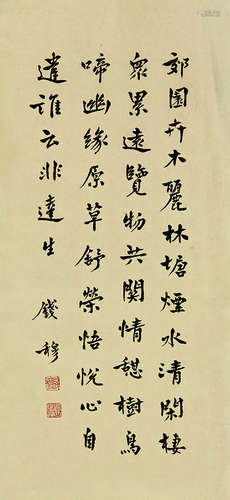 郊園卉木麗林塘煙水清閑棲
衆累遠覽物共關情憩樹鳥
啼幽緣原草舒榮悟悅心自
遣誰云非達生
錢穆